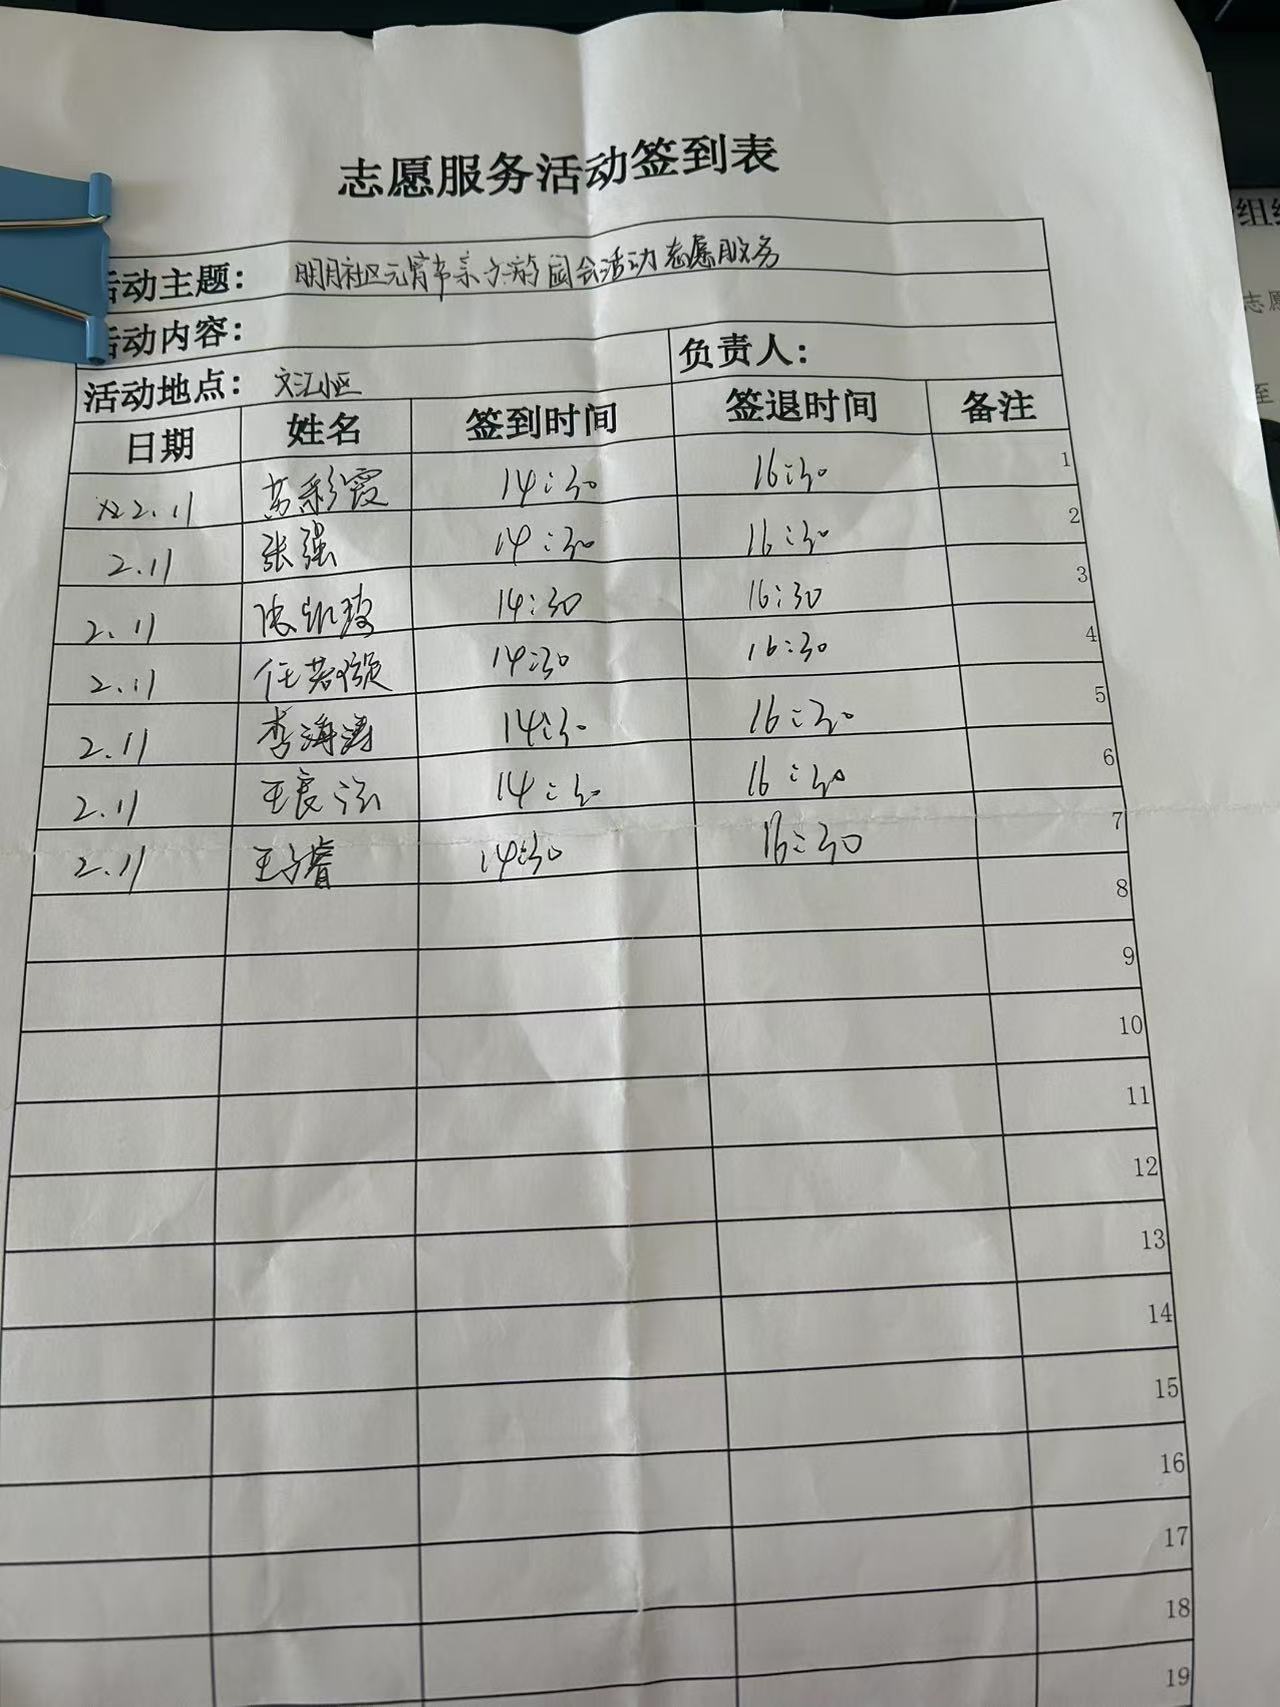 志愿服务活动签到表
活动主题: 明月社区元宵节亲子游园会活动志愿服务
活动内容:
活动地点: 文江小区 负责人:
日期 姓名 签到时间 签退时间 备注
2.11 苏彩霞 14:30 16:30 1
2.11 张强 14:30 16:30 2
2.11 14:30 16:30 3
2.11 任若 14:30 16:30 4
2.11 李海涛 14:30 16:30 5
2.11 王良 14:30 16:30 6
2.11 王子睿 14:30 16:30 7
8
9
10
11
12
13
14
15
16
17
18
19
组
志愿
至